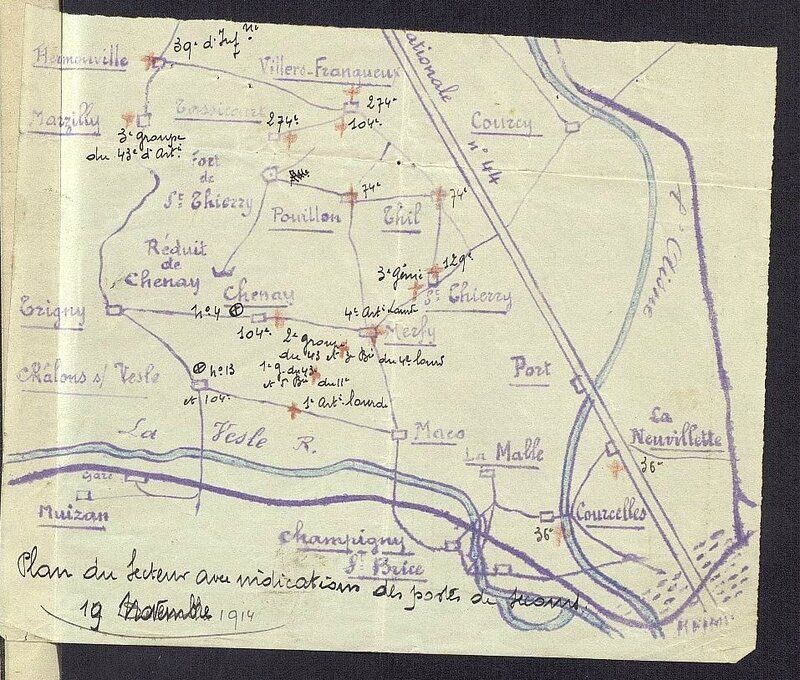 39e d'Infie
Hermonville
Villers-Franqueux
ationale
274e
Tossicourt
Marzilly
274e
104e
Courcy
3e groupe
du 43e d'Arti.
n° 44
Fort
de
St Thierry
74e
74e
Pouillon
Thil
L'Aisne
Réduit
de
Chenay
129e
3e Génie
St Thierry
Chenay
Trigny
n° 4
4e Arti lourde
104e
Merfy
2e groupe
du 43 et 3e Bie du 4e lourd
n° 13
1e g. du 43
et 5 Bie du 11e
Port
Châlons s/ Vesle
et 104e
1e Arti lourde
La
Neuvillette
La Vesle R.
Maco
La Malle
36e
Gare
Muizan
Courcelles
36e
Champigny
St Brice
Plan du Secteur avec indications des postes de secours.
19 Novembre 1914